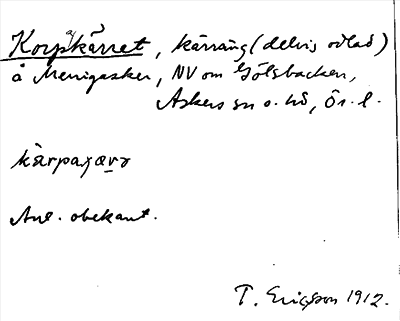 Korpakärret, kärräng (delvis odlad)
å Menigasker, NV om Gölsbacken,
Askers sn o. hd, Ör. l.
kårpaʒæṟə
Anl. obekant.
T. Ericsson 1912.